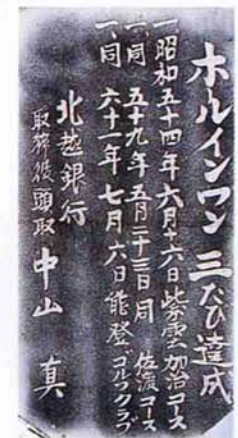 ホールインワン 三たび達成
一、昭和五十四年六月十六日 紫雲 加治コース
一、同 五十九年五月二十三日 同 佐渡コース
一、同 六十一年七月六日 能登ゴルフクラブ
北越銀行
取締役頭取 中山 真